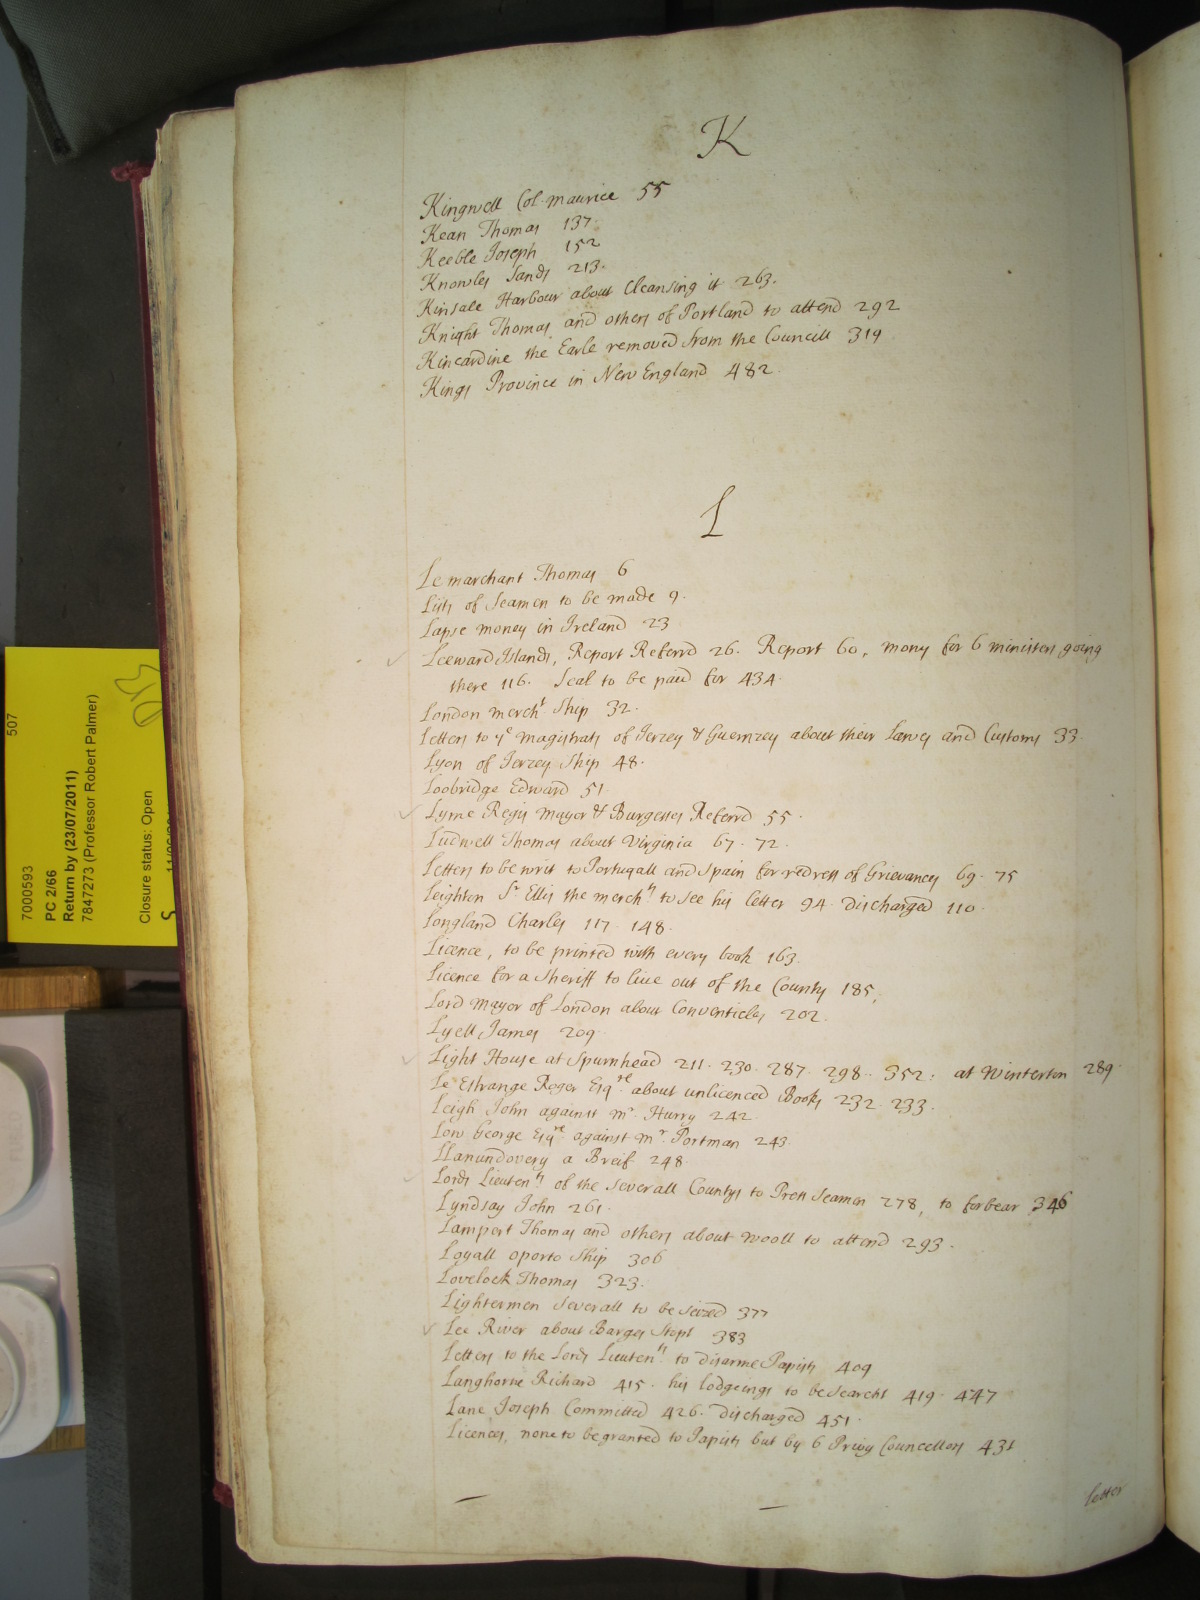 K
Kingwell Col. maurice 55
Kean Thomas 137.
Keeble Joseph 152
Knowles Sands 213.
Kinsale Harbour about Cleansing it 263.
Knight Thomas and others of Portland to attend 292
Kincardine the Earle removed from the Councill 319
Kings Province in New England 482.
L
Le marchant Thomas 6
Lists of Seamen to be made 9.
Lapse money in Ireland 23
Leeward Islands, Report Referrd 26. Report 60, mony for 6 ministers going
there 116. Seal to be paid for 434.
London mercht Ship 32.
Letters to ye magistrats of Jerzey & Guernzey about their Lawes and Customs 33.
Lyon of Jerzey Ship 48.
Loobridge Edward 51
Lyme Regis mayor & Burgesses Referrd 55.
Ludwell Thomas about Virginia 67. 72.
Letters to be writ to Portugall and Spain for redress of Grievances 69. 75
Leighton Sr Ellis the merchts to see his letter 94. discharged 110.
Longland Charles 117. 148.
Licence, to be printed with every book 163.
Licence for a Sheriff to live out of the County 185,
Lord Mayor of London about Conventicles 202.
Lyell James 209.
Light House at Spurnhead 211. 230. 287. 298. 352: at Winterton 289.
Le Estrange Roger Esqre about unlicenced Books 232. 233.
Leigh John against mr. Hurry 242.
Low George Esqre against mr. Portman 243.
Llanundovery a Breif 248
Lords Lieutents of the severall Countys to Press Seamen 278, to forbear 346
Lyndsay John 261.
Lampert Thomas and others about wooll to attend 293.
Loyall oporto Ship 306
Lovelock Thomas 323.
Lightermen severall to be seized 377
Lee River about Barges Stopt 383
Letters to the Lords Lieutents to disarme Papists 409
Langhorne Richard 415. his lodgeings to be searcht 419. 447
Lane Joseph Committed 426. discharged 451.
Licences, none to be granted to Papists but by 6 Privy Councellors 431
letter
507
7000593
PC 2/66
Return by (23/07/2011)
7847273 (Professor Robert Palmer)
Closure status: Open